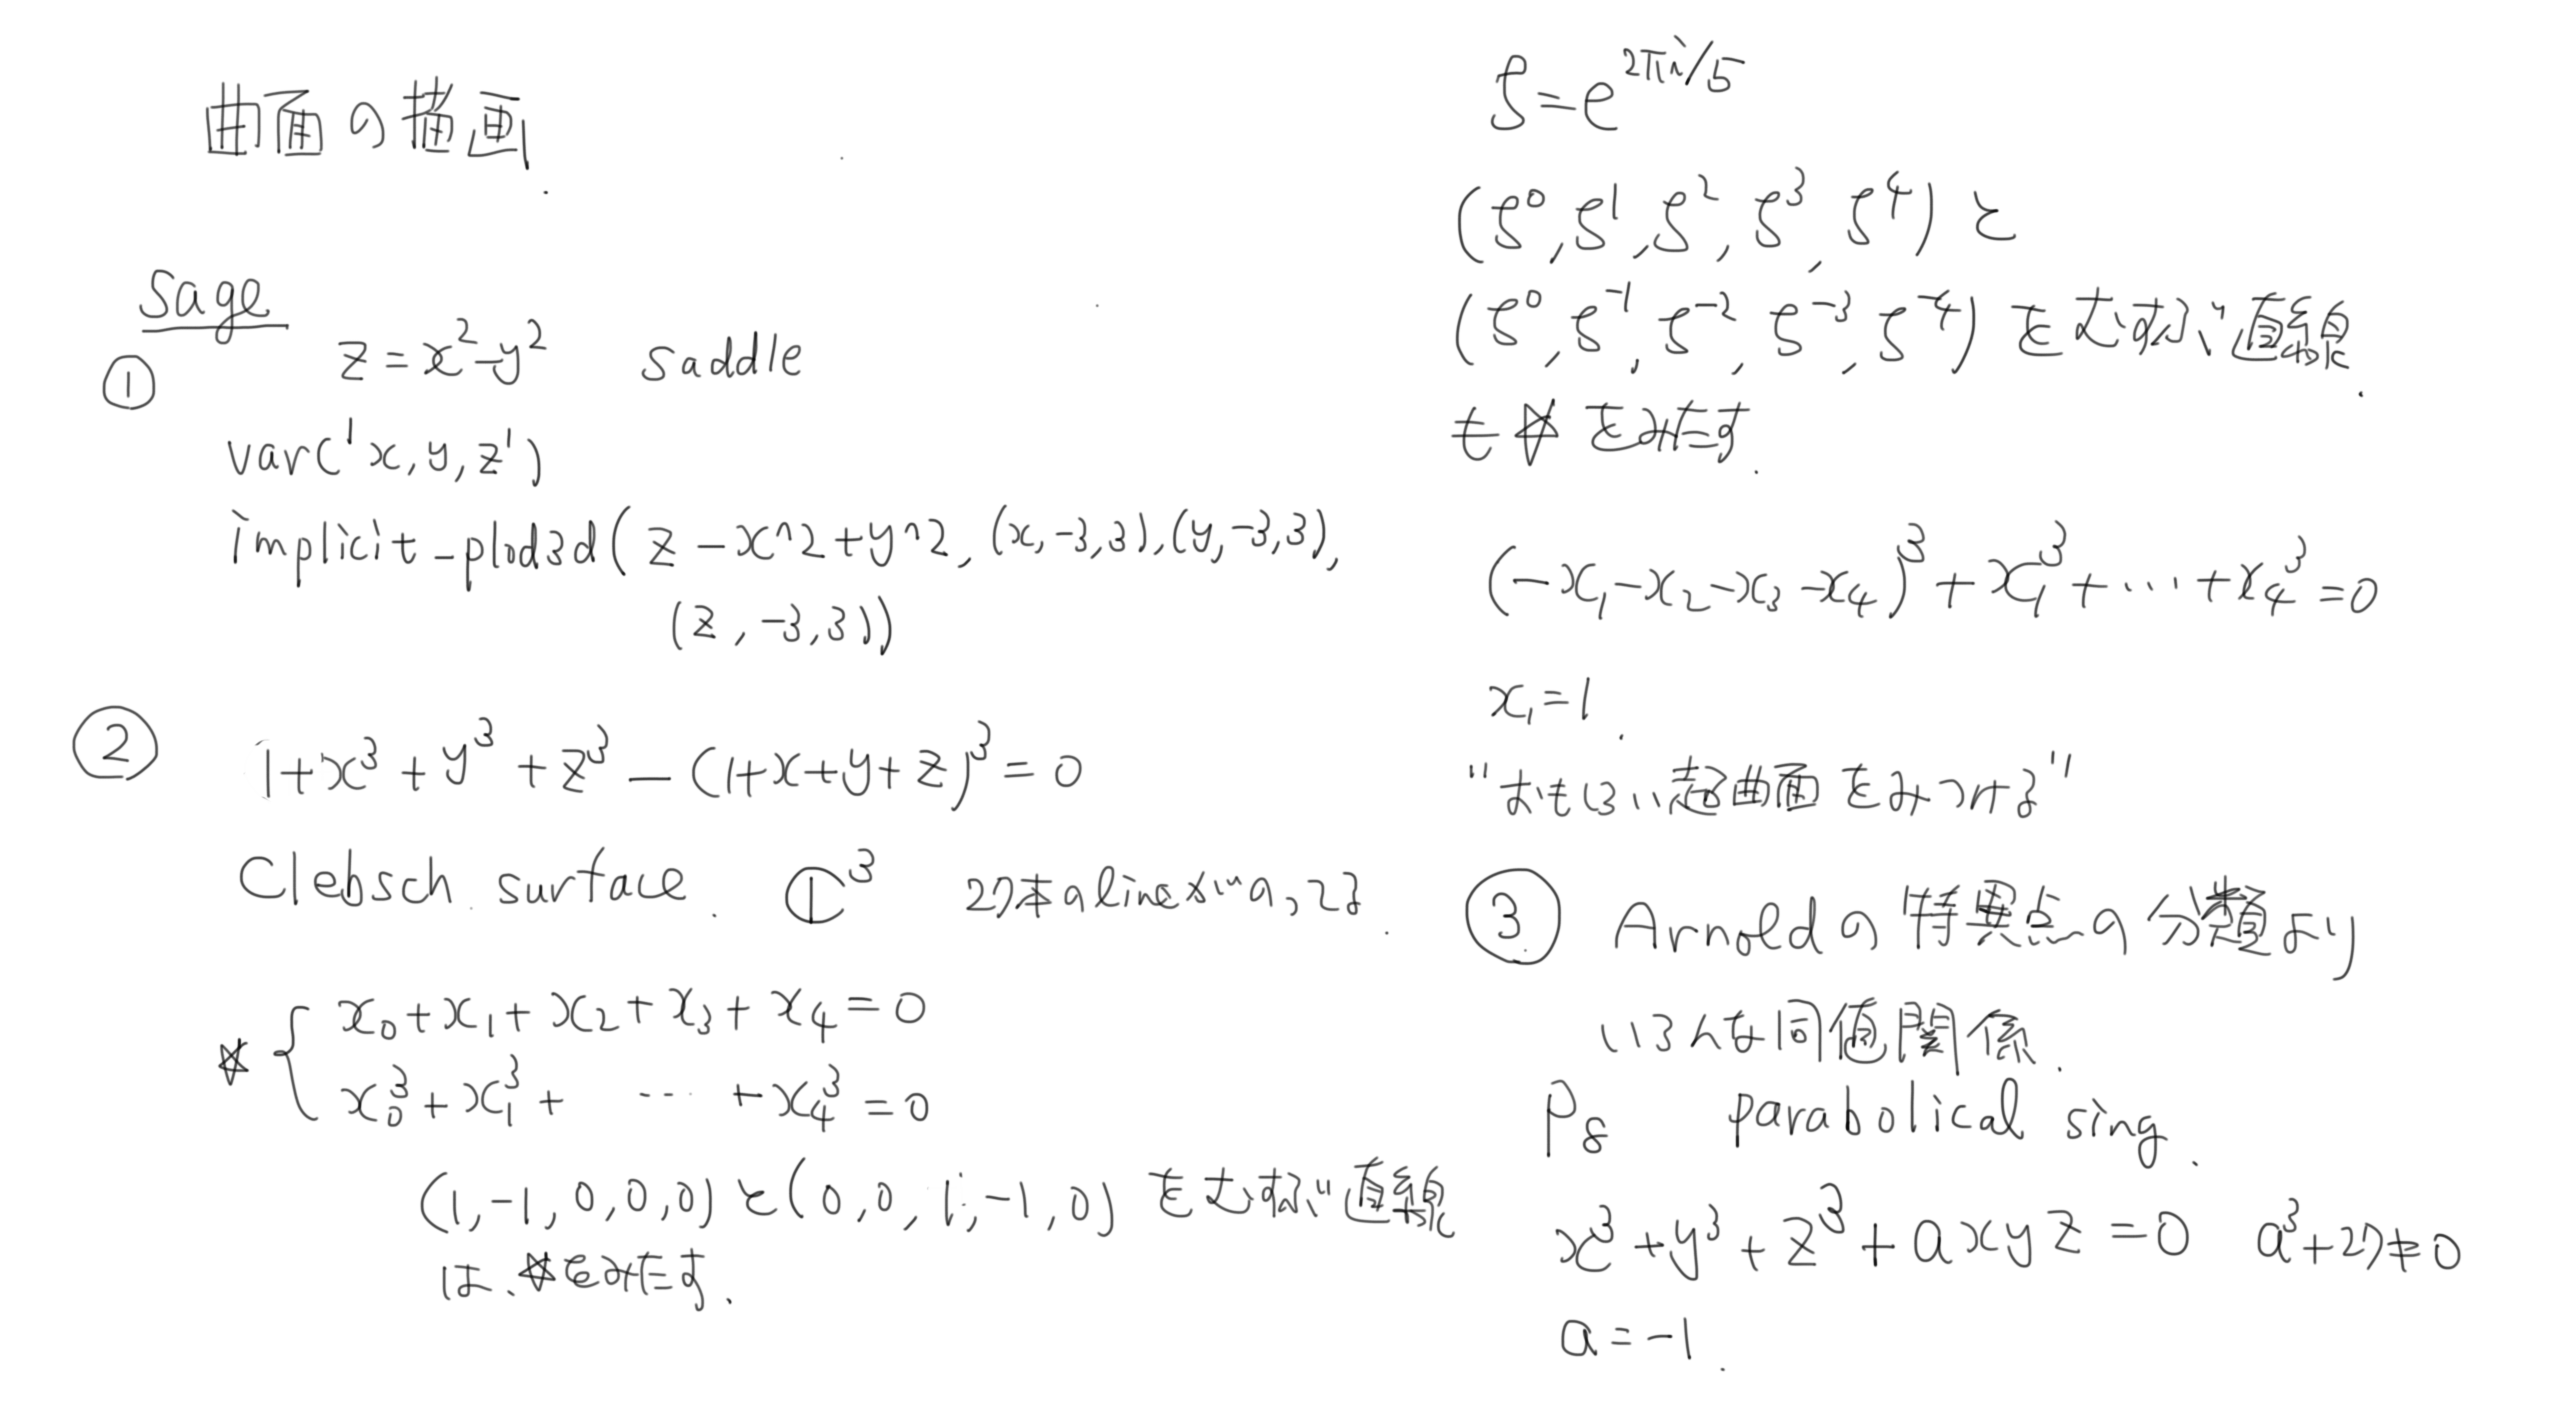 曲面の描画.
Sage
① z = x² - y² saddle
var('x, y, z')
implicit_plod3d(z - x^2 + y^2, (x, -3, 3), (y, -3, 3),
(z, -3, 3))
② 1 + x³ + y³ + z³ - (1 + x + y + z)³ = 0
Clebsch surface. ℂ³ 27本のlineがのってる.
☆ { x₀ + x₁ + x₂ + x₃ + x₄ = 0
x₀³ + x₁³ + ... + x₄³ = 0
(1, -1, 0, 0, 0) と (0, 0, 1, -1, 0) をむすぶ直線
は、☆をみたす.
ζ = e^{2πi/5}
(ζ⁰, ζ¹, ζ², ζ³, ζ⁴) と
(ζ⁰, ζ⁻¹, ζ⁻², ζ⁻³, ζ⁻⁴) をむすぶ直線.
も ☆ をみたす.
(-x₁ - x₂ - x₃ - x₄)³ + x₁³ + ... + x₄³ = 0
x₁ = 1.
"おもしろい超曲面をみつける"
③ Arnoldの特異点の分類より
いろんな同値関係.
P₈ parabolical sing.
x³ + y³ + z³ + axyz = 0 a³ + 27 ≠ 0
a = -1.